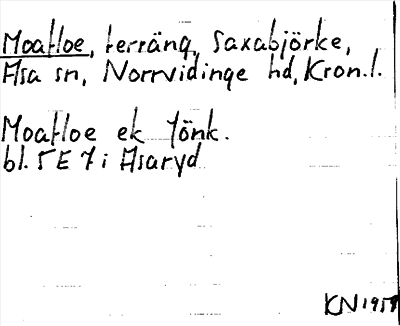 Moafloe, terräng, Saxabjörke,
Asa sn, Norrvidinge hd, Kron.l.
Moafloe ek Jönk.
bl. 5 E 7 i Asaryd
KN 1958